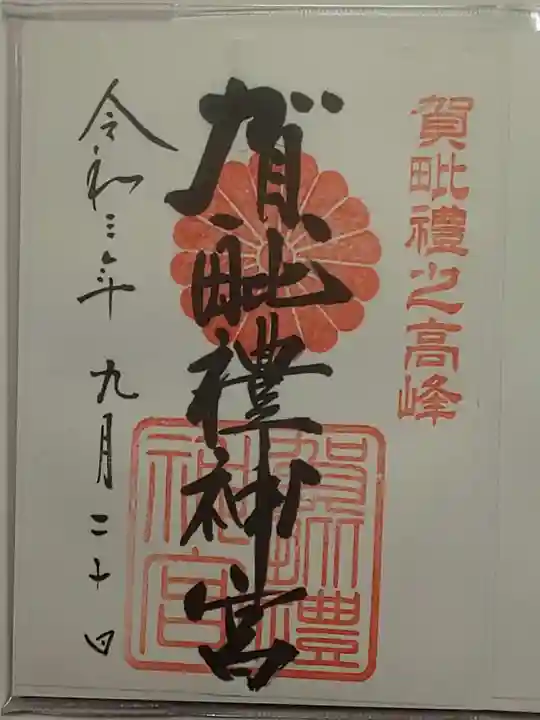 賀毗禮之高峰
賀毗禮神宮
賀毗禮神宮
令和三年九月二十日